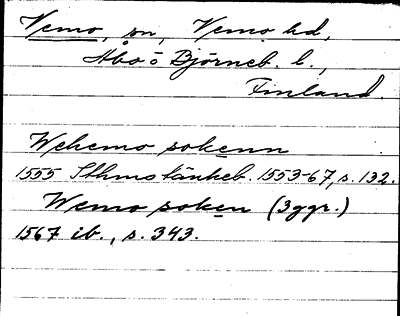 Vemo, sn, Vemo hd,
Åbo o Björneb. l.,
Finland.
Wehemo sokenn
1555 Sthms tänkeb. 1553-67, s. 132.
Wemo soken (3 ggr.)
1567 ib., s. 343.